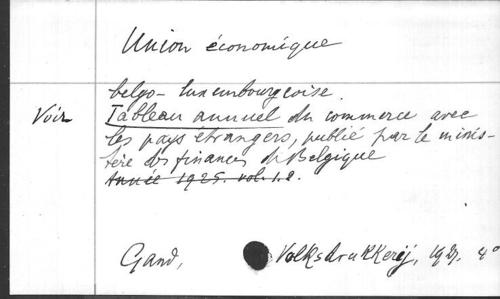 Union économique
belgo-luxembourgeoise.
Voir Tableau annuel du commerce avec
les pays étrangers, publié par le minis-
tère des finances de Belgique
Année 1925. vol. 1.2.
Gand, Volksdrukkerij, 192. 4°